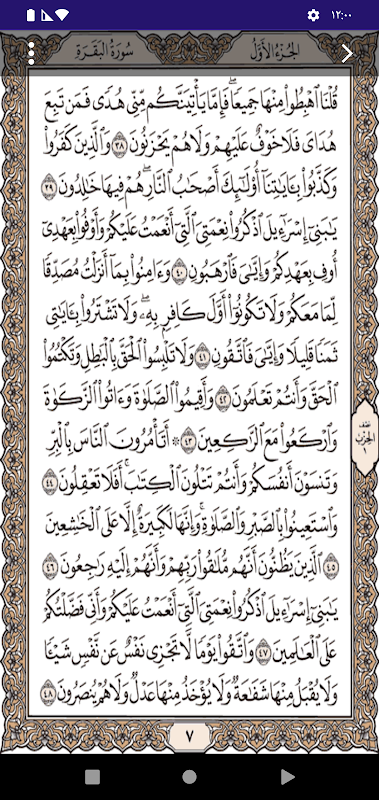 ١٢:٠٠
سُورَةُ البَقَرَةِ الجُزْءُ الأَوَّلُ
قُلْنَا ٱهْبِطُوا۟ مِنْهَا جَمِيعًۭا ۖ فَإِمَّا يَأْتِيَنَّكُم مِّنِّى هُدًۭى فَمَن تَبِعَ
هُدَاىَ فَلَا خَوْفٌ عَلَيْهِمْ وَلَا هُمْ يَحْزَنُونَ ٣٨ وَٱلَّذِينَ كَفَرُوا۟
وَكَذَّبُوا۟ بِـَٔايَـٰتِنَآ أُو۟لَـٰٓئِكَ أَصْحَـٰبُ ٱلنَّارِ ۖ هُمْ فِيهَا خَـٰلِدُونَ ٣٩
يَـٰبَنِىٓ إِسْرَٰٓءِيلَ ٱذْكُرُوا۟ نِعْمَتِىَ ٱلَّتِىٓ أَنْعَمْتُ عَلَيْكُمْ وَأَوْفُوا۟ بِعَهْدِىٓ
أُوفِ بِعَهْدِكُمْ وَإِيَّـٰىَ فَٱرْهَبُونِ ٤٠ وَءَامِنُوا۟ بِمَآ أَنزَلْتُ مُصَدِّقًۭا
لِّمَا مَعَكُمْ وَلَا تَكُونُوٓا۟ أَوَّلَ كَافِرٍۭ بِهِۦ ۖ وَلَا تَشْتَرُوا۟ بِـَٔايَـٰتِى
ثَمَنًۭا قَلِيلًۭا وَإِيَّـٰىَ فَٱتَّقُونِ ٤١ وَلَا تَلْبِسُوا۟ ٱلْحَقَّ بِٱلْبَـٰطِلِ وَتَكْتُمُوا۟
ٱلْحَقَّ وَأَنتُمْ تَعْلَمُونَ ٤٢ وَأَقِيمُوا۟ ٱلصَّلَوٰةَ وَءَاتُوا۟ ٱلزَّكَوٰةَ
وَٱرْكَعُوا۟ مَعَ ٱلرَّٰكِعِينَ ٤٣ ۞ أَتَأْمُرُونَ ٱلنَّاسَ بِٱلْبِرِّ
نصف الحزب ١
وَتَنسَوْنَ أَنفُسَكُمْ وَأَنتُمْ تَتْلُونَ ٱلْكِتَـٰبَ ۚ أَفَلَا تَعْقِلُونَ ٤٤
وَٱسْتَعِينُوا۟ بِٱلصَّبْرِ وَٱلصَّلَوٰةِ ۚ وَإِنَّهَا لَكَبِيرَةٌ إِلَّا عَلَى ٱلْخَـٰشِعِينَ
٤٥ ٱلَّذِينَ يَظُنُّونَ أَنَّهُم مُّلَـٰقُوا۟ رَبِّهِمْ وَأَنَّهُمْ إِلَيْهِ رَٰجِعُونَ ٤٦
يَـٰبَنِىٓ إِسْرَٰٓءِيلَ ٱذْكُرُوا۟ نِعْمَتِىَ ٱلَّتِىٓ أَنْعَمْتُ عَلَيْكُمْ وَأَنِّى فَضَّلْتُكُمْ
عَلَى ٱلْعَـٰلَمِينَ ٤٧ وَٱتَّقُوا۟ يَوْمًۭا لَّا تَجْزِى نَفْسٌ عَن نَّفْسٍۢ شَيْـًۭٔا
وَلَا يُقْبَلُ مِنْهَا شَفَـٰعَةٌۭ وَلَا يُؤْخَذُ مِنْهَا عَدْلٌۭ وَلَا هُمْ يُنصَرُونَ ٤٨
٧